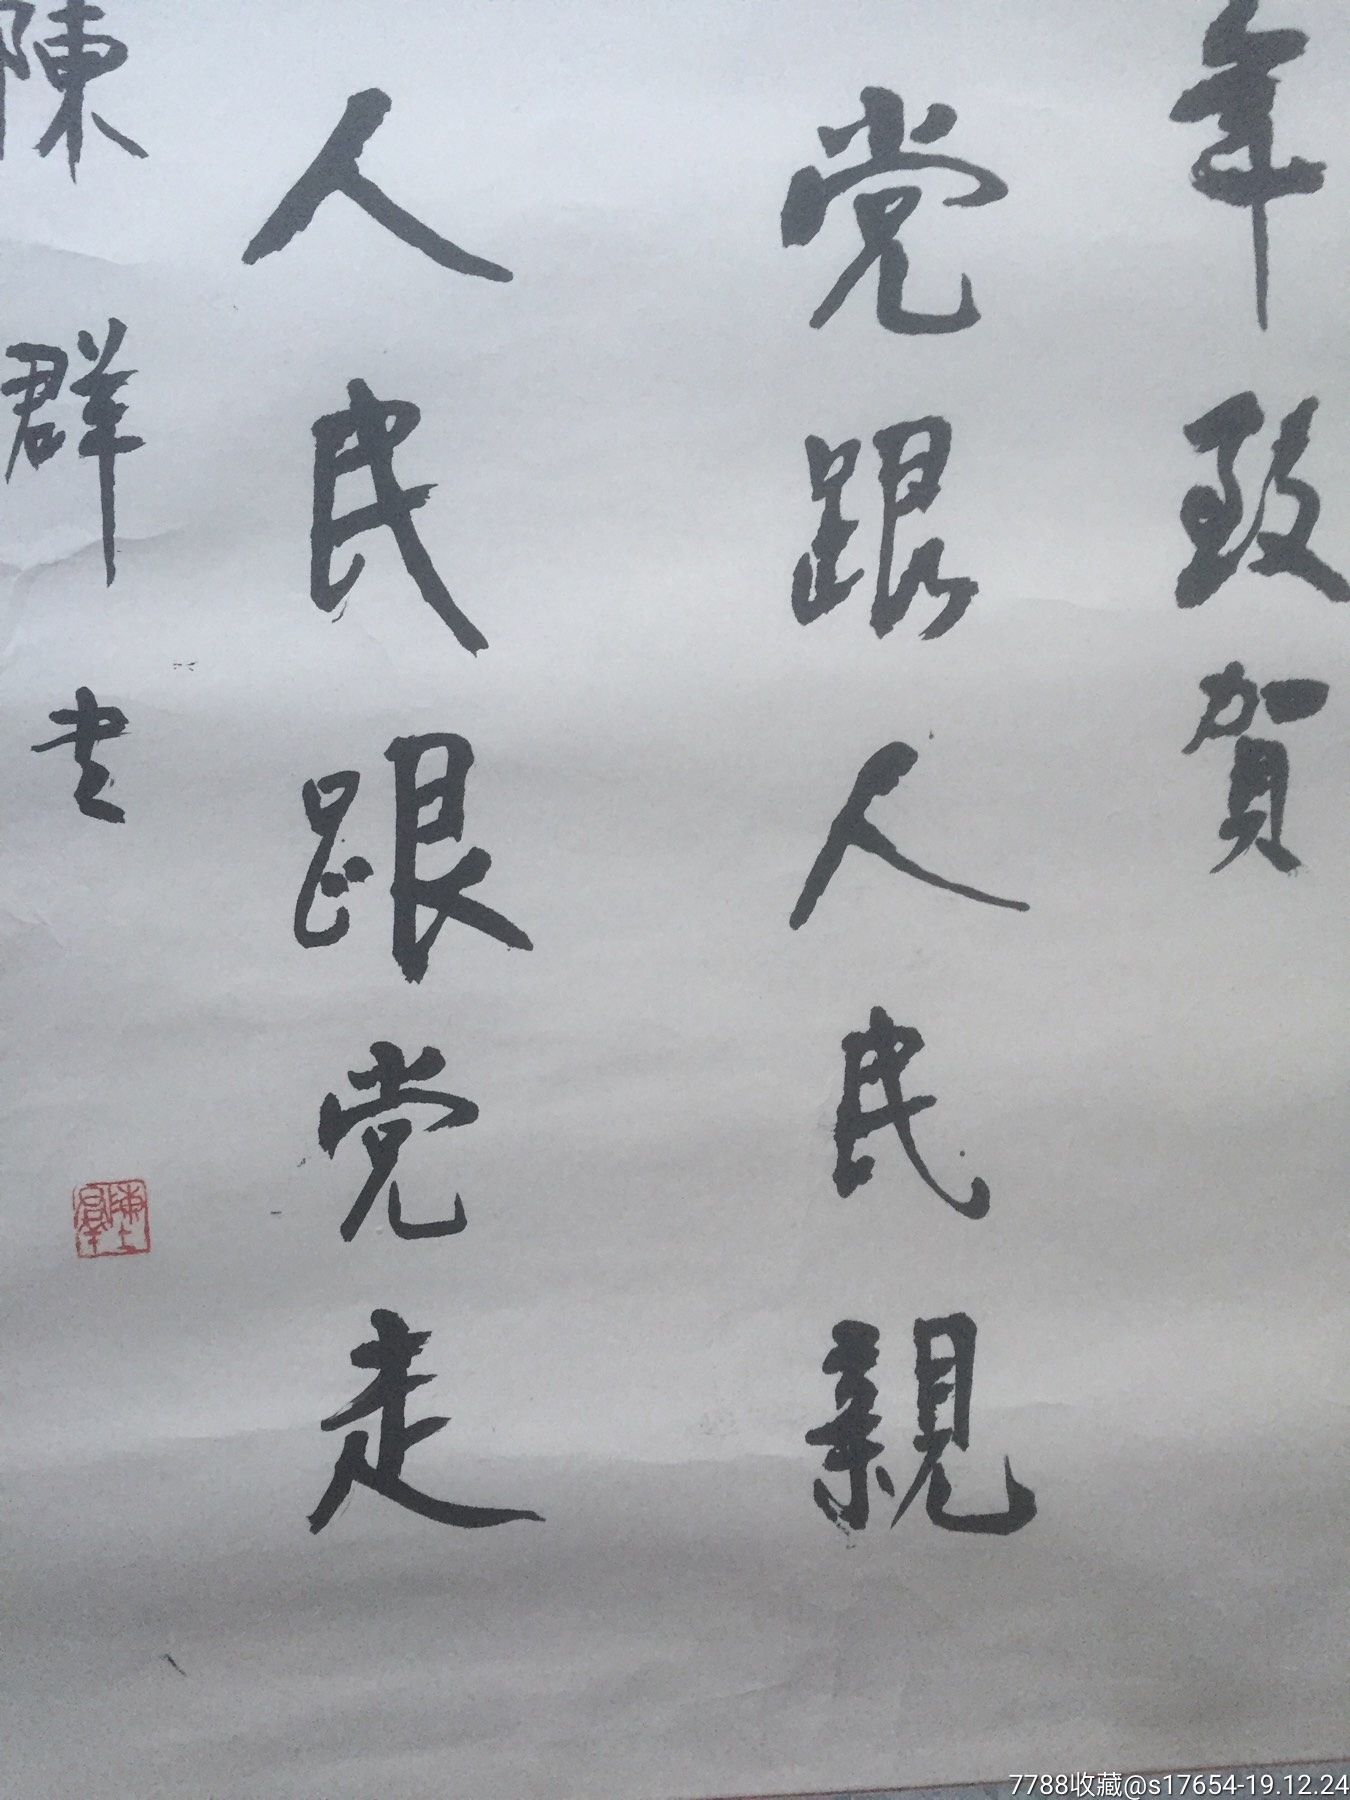 年致賀
党跟人民親
人民跟党走
陳群书
陳群
7788收藏@s17654-19.12.24